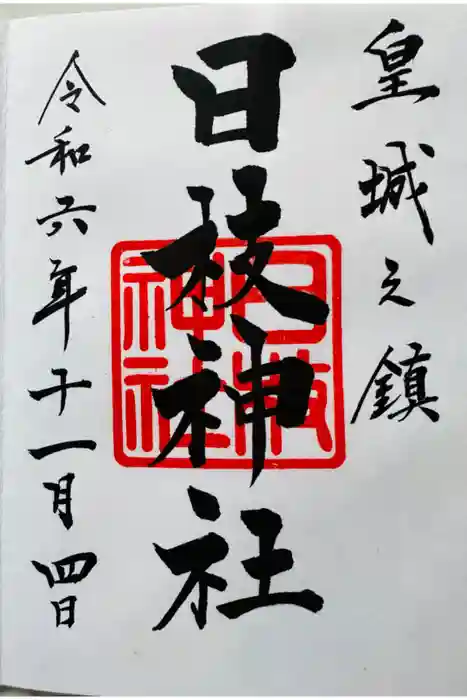 皇城之鎮
日枝神社
日枝神社
令和六年十一月四日